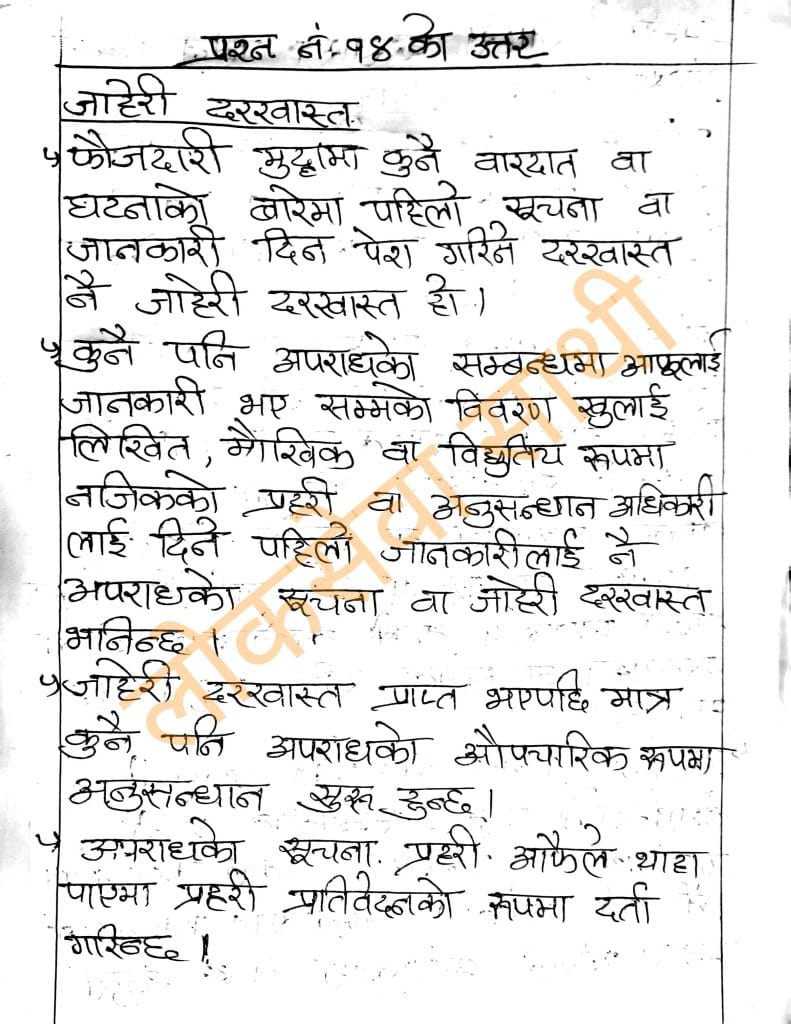 प्रश्न नं. १४ को उत्तर
जाहेरी दरखास्त
फौजदारी मुद्दामा कुनै वारदात वा
घटनाको बारेमा पहिलो सूचना वा
जानकारी दिन पेश गरिने दरखास्त
नै जाहेरी दरखास्त हो।
कुनै पनि अपराधको सम्बन्धमा आफूलाई
जानकारी भए सम्मको विवरण खुलाई
लिखित, मौखिक वा विद्युतिय रूपमा
नजिकको प्रहरी वा अनुसन्धान अधिकारी
लाई दिने पहिलो जानकारीलाई नै
अपराधको सूचना वा जाहेरी दरखास्त
भनिन्छ।
जाहेरी दरखास्त प्राप्त भएपछि मात्र
कुनै पनि अपराधको औपचारिक रूपमा
अनुसन्धान सुरू हुन्छ।
अपराधको सूचना प्रहरी आफैले थाहा
पाएमा प्रहरी प्रतिवेदनको रूपमा दर्ता
गरिन्छ।
लोकसेवा साथी